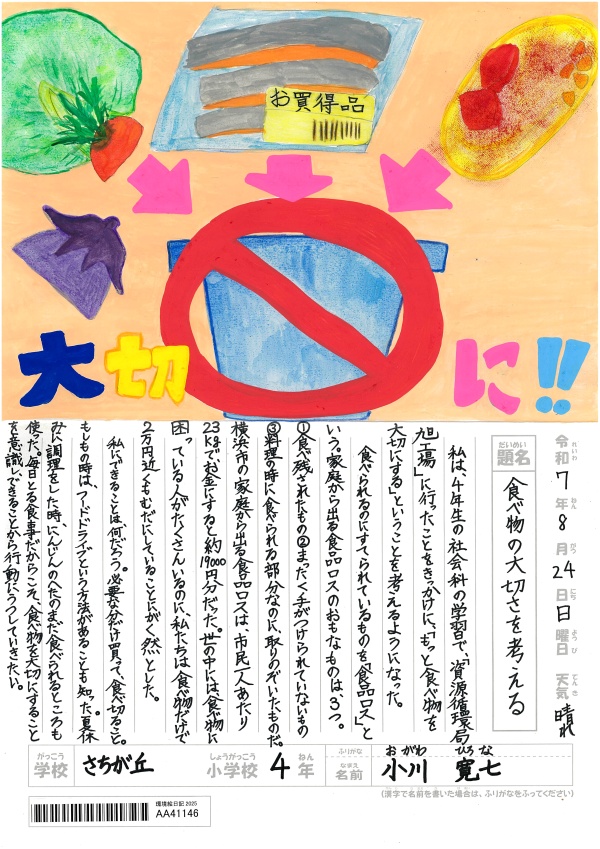 お買得品
大切に!!
令和7年8月24日日曜日 天気 晴れ
れいわ ねん がつ にち ようび てんき
だいめい
題名 食べ物の大切さを考える
私は、4年生の社会科の学習で、「資源循環局
旭工場」に行ったことをきっかけに、「もっと食べ物を
大切にする」ということを考えるようになった。
食べられるのにすてられているものを「食品ロス」と
いう。家庭から出る食品ロスのおもなものは、3つ。
①食べ残されたもの②まったく手がつけられていないもの
③料理の時に食べられる部分なのに、取りのぞいたものだ。
横浜市の家庭から出る食品ロスは、市民一人あたり
23kgでお金にすると約19000円分だった。世の中には、食べ物に
困っている人がたくさんいるのに、私たちは食べ物だけで
2万円近くもむだにしていることにがく然とした。
私にできることは何だろう。必要な分だけ買って、食べ切ること。
もしもの時は、フードドライブという方法があることも知った。夏休
みに調理をした時、にんじんのへたのまだ食べられるところも
使った。毎日とる食事だからこそ、食べ物を大切にすること
を意識してできることから行動にうつしていきたい。
がっこう しょうがっこう ねん ふりがな おがわ ひろな
学校 さちが丘 小学校 4年 なまえ 名前 小川 寛七
(漢字で名前を書いた場合は、ふりがなをふってください)
環境絵日記2025
AA41146